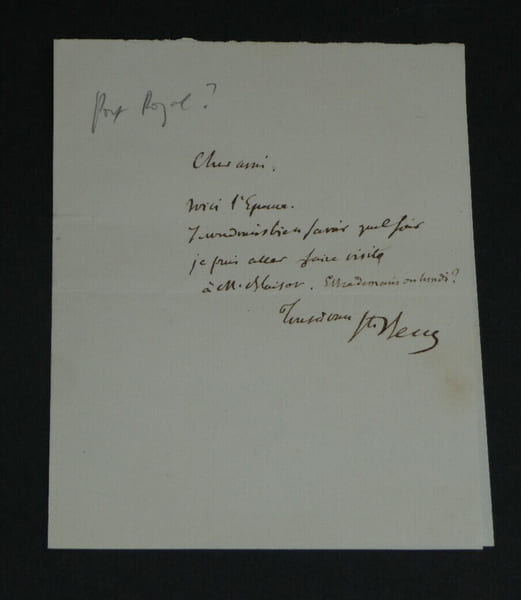 Port Royal?
Cher ami,
voici l'Epreuve.
Je voudrais bien savoir quel soir
je puis aller faire visite
à M. . Est-ce demain ou lundi?
Tout à vous Ste Beuve